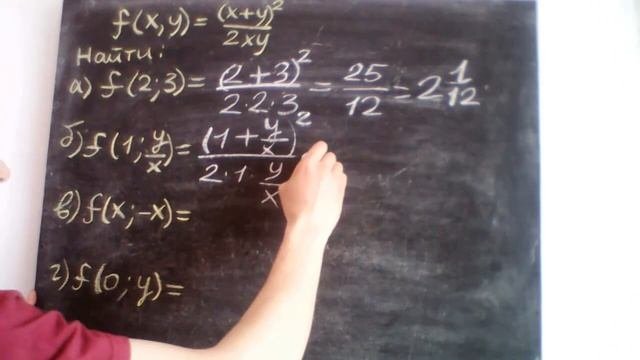 f(x,y) = (x+y)²/2xy
Найти:
а) f(2;3) = (2+3)²/2·2·3 = 25/12 = 2 1/12
б) f(1; y/x) = (1+y/x)²/2·1·y/x
в) f(x;-x) =
г) f(0;y) =